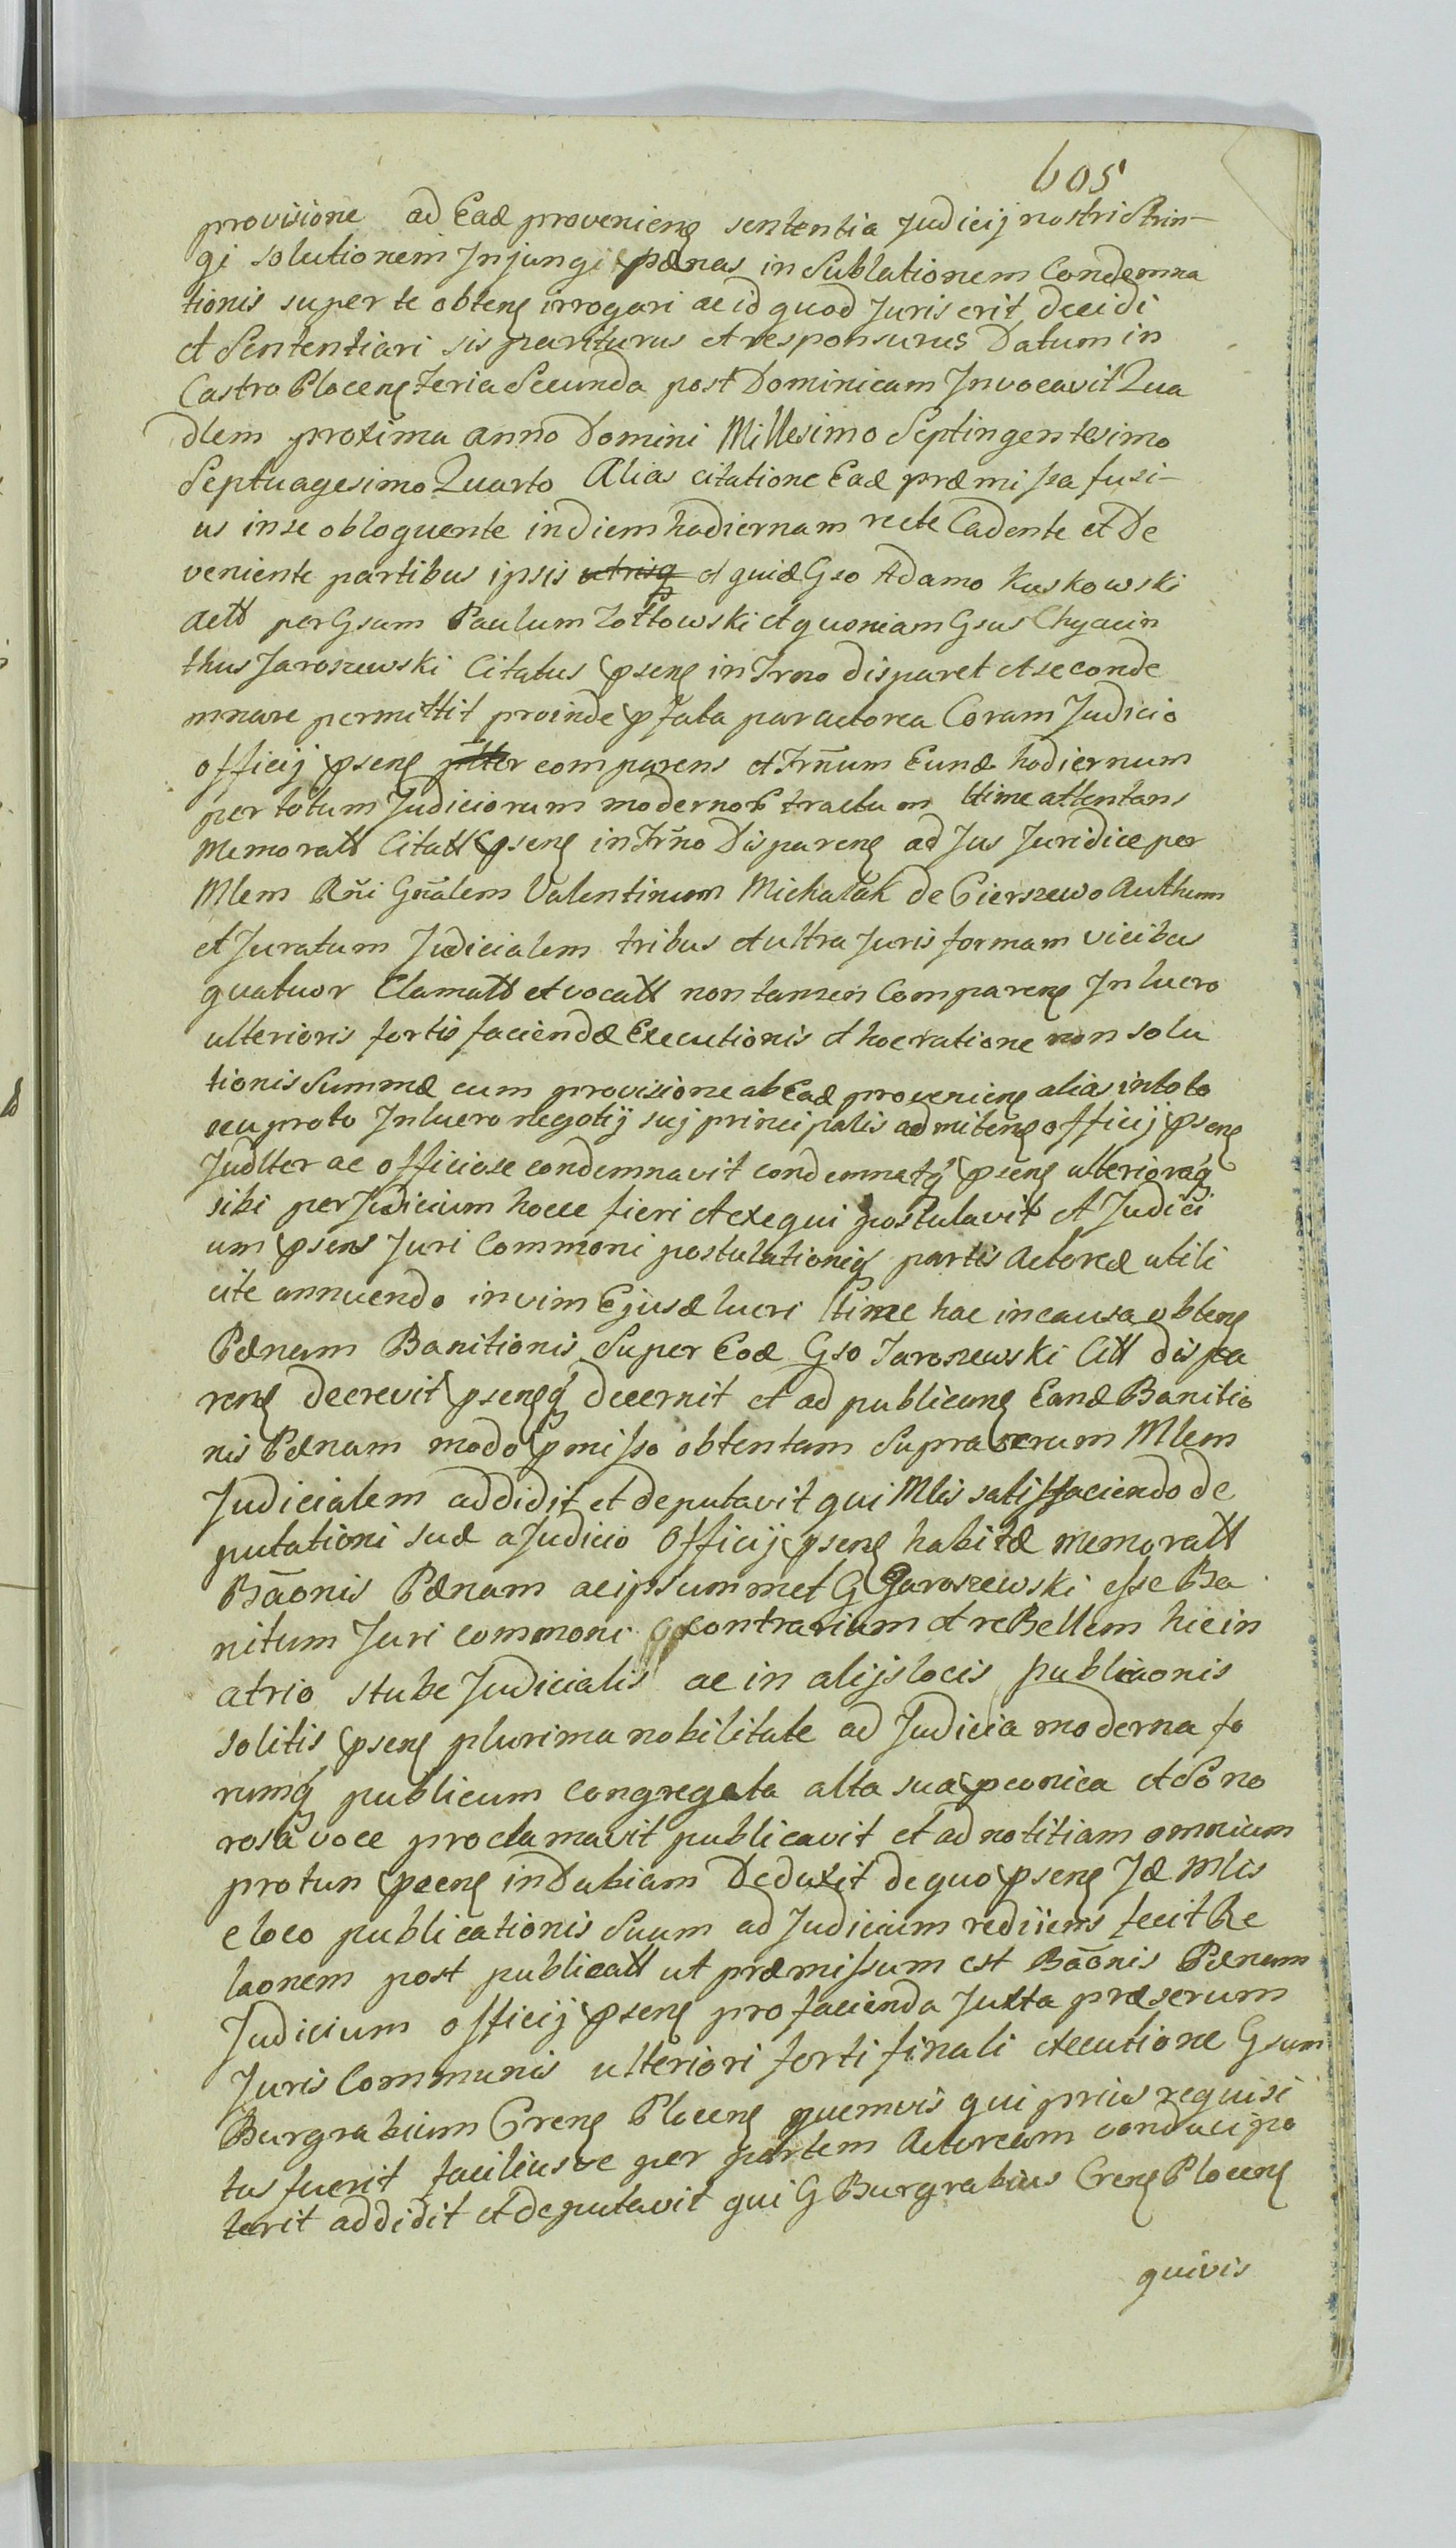 605
provisione ad Eadæ provenienę sententia Judicij nostri Strin-
gi solutionem Injungi pænas in Sublationem Condemna
tionis super te obtenę irrogari ac id quod Juris erit decidi
et Sententiari sis pariturus et responsurus Datum in
Castro Plocenę Feria Secunda post Dominicam Invocavit Qua
dlem proxima anno Domini Millesimo Septingentesimo
Septuagesimo Quarto Alias citatione Eadæ præmissa fusi-
us in se obloquente in diem hodiernam recte Cadente et De
veniente partibus ipsis utrisq et quidæ Gso Adamo Kuskowski
Actt per Gsum Paulum Zołtowski et quoniam Gsus Chyacin
thus Jaroszewski Citatus psenę in Trno disparet et se conde
mnare permittit proinde pfata pars actorea Coram Judicio
officij psenę pltter comparens et Trñum Eundæ hodiernum
per totum Judiciorum modernoR tractum ltime attentans
Memoratt Citatt psenę in Trño Disparenę ad Jus Juridice per
Mlem Rñi Gñalem Valentinum Michalak de Gierszewo Authum
et Juratum Judicialem tribus et ultra Juris formam vicibus
quatuor Clamatt et vocatt non tamen Comparenę In lucro
ulterioris fortis faciendæ Executionis et hoc ratione non solu
tionis Summæ cum provisione ab Eadæ provenienę alias in toto
seu proto In lucro negotij suj principalis admittenę officij psenę
Judlter ac officiose condemnavit condemnatq psenę ulterioraq
sibi per Judicium hocce fieri et exequi postulavit et Judici
um psens Juri Commoni postulationiq partis Actoreæ utili
cite annuendo in vim Ejusdæ lucri ltime hac in causa obtenę
Pænam Banitionis Super Eodæ Gso Jaroszewski Citt dispa
renę decrevit psenęq decernit et ad publicanę Eandæ Banitio
nis Pænam modo pmisso obtentam Suprascrum Mlem
Judicialem addidit et deputavit qui Mlis satisfaciendo de
putationi suæ a Judicio Officij psenę habitæ memoratt
Bãonis Pænam ac ipsummet G Jaroszewski esse Ba
nitum Juri commoni contrarium et reBellem hic in
atrio stubæ Judicialis ac in alijs locis publicaonis
solitis psenę plurima nobilitate ad Judicia moderna fo
rumq publicum congregata alta sua pconica et Sono
rosa voce proclamavit publicavit et ad notitiam omnium
pro tun psenę in Dubiam Deduxit de quo psenę Jdæ Mlis
e loco publicationis Suum ad Judicium rediiens fecit Re
laonem post publicatt ut præmissum est Bãonis Pænam
Judicium officij psenę pro facienda Juxta præscrum
Juris Communis ulteriori forti finali executione Gsum
Burgrabium Crenę Plocenę quemvis qui prius requisi
tus fuerit faciliusve per partem Actoream conduci po
terit addidit et deputavit qui G Burgrabius Crenę Plocenę
quivis